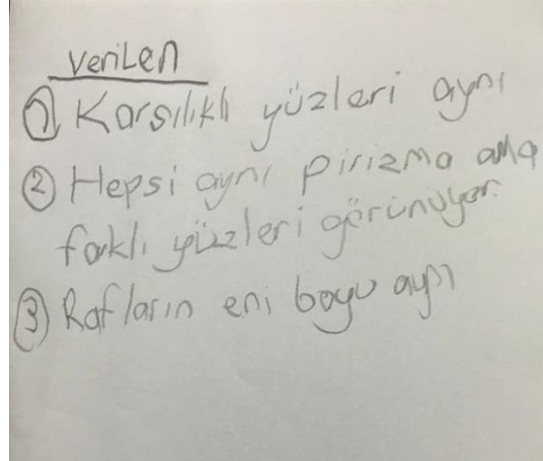 Verilen
① Karsılıklı yüzleri aynı
② Hepsi aynı pirizma ama
farklı yüzleri görünüyor.
③ Rafların eni boyu aynı